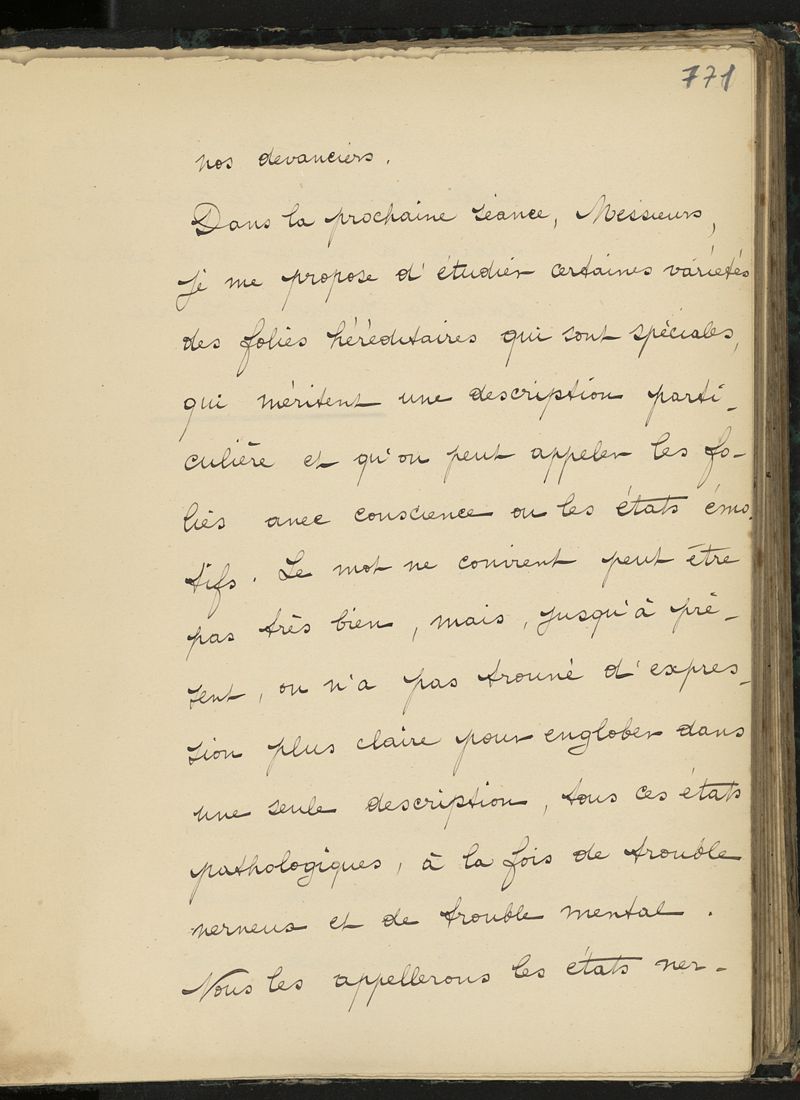 771
nos devanciers.
Dans la prochaine séance, Messieurs,
je me propose d'étudier certaines variétés
des folies héréditaires qui sont spéciales,
qui méritent une description parti-
culière et qu'on peut appeler les fo-
lies avec conscience ou les états émo-
tifs. Le mot ne convient peut être
pas très bien, mais, jusqu'à pré-
sent, on n'a pas trouvé d'expres-
sion plus claire pour englober dans
une seule description, tous ces états
pathologiques, à la fois de trouble
nerveux et de trouble mental.
Nous les appellerons les états ner-